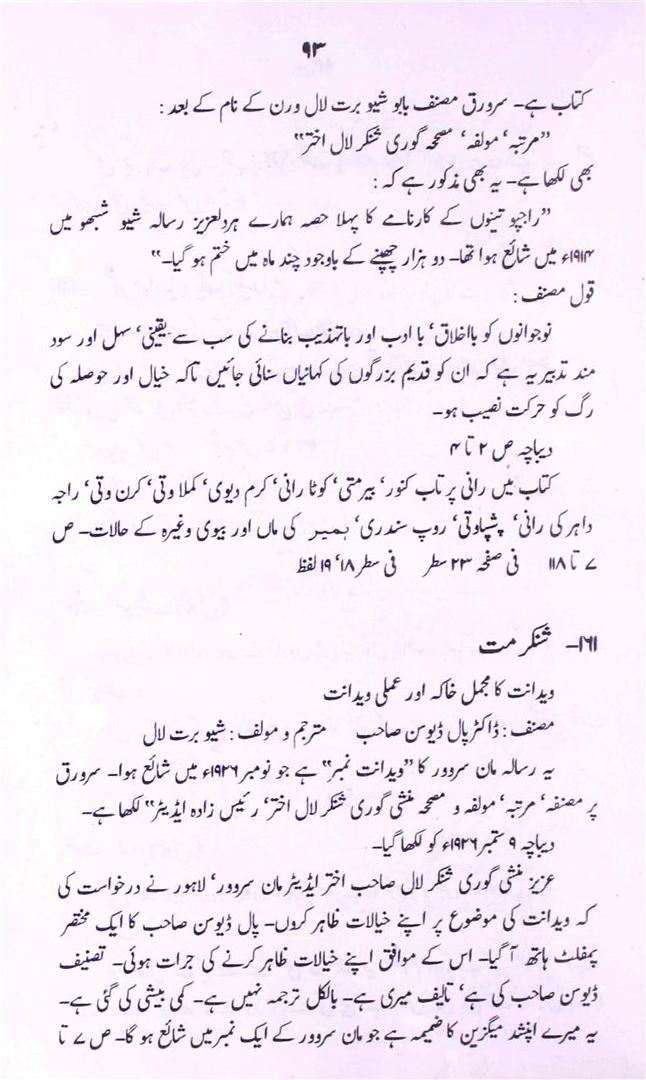 ۹۳
کتاب ہے۔ سرورق مصنف بابو شیو برت لال ورن کے نام کے بعد :
"مرتبہ' مولفہ' مصححہ گوری شنکر لال اختر"
بھی لکھا ہے۔ یہ بھی مذکور ہے کہ :
"راجپوتنیوں کے کارنامے کا پہلا حصہ ہمارے ہردلعزیز رسالہ شیو شمبھو میں
۱۹۱۴ء میں شائع ہوا تھا۔ دو ہزار چھپنے کے باوجود چند ماہ میں ختم ہو گیا۔"
قول مصنف :
نوجوانوں کو بااخلاق' با ادب اور باتہذیب بنانے کی سب سے یقینی' سہل اور سود
مند تدبیر یہ ہے کہ ان کو قدیم بزرگوں کی کہانیاں سنائی جائیں تاکہ خیال اور حوصلہ کی
رگ کو حرکت نصیب ہو۔
دیباچہ ص ۲ تا ۴
کتاب میں رانی پرتاب کنور' بیرمتی' کوٹا رانی' کرم دیوی' کملا وتی' کرن وتی' راجہ
داہر کی رانی' پشپاوتی' روپ سندری' ہمیر کی ماں اور بیوی وغیرہ کے حالات۔ ص
۷ تا ۱۱۸ فی صفحہ ۲۳ سطر فی سطر ۱۸' ۱۹ لفظ
۱۶۱۔ شنکر مت
ویدانت کا مجمل خاکہ اور عملی ویدانت
مصنف : ڈاکٹر پال ڈیوسن صاحب مترجم و مولف : شیو برت لال
یہ رسالہ مان سروور کا "ویدانت نمبر" ہے جو نومبر ۱۹۲۶ء میں شائع ہوا۔ سرورق
پر مصنفہ' مرتبہ' مولفہ و مصححہ منشی گوری شنکر لال اختر' رئیس زادہ ایڈیٹر" لکھا ہے۔
دیباچہ ۹ ستمبر ۱۹۲۶ء کو لکھا گیا۔
عزیز منشی گوری شنکر لال صاحب اختر ایڈیٹر مان سروور' لاہور نے درخواست کی
کہ ویدانت کی موضوع پر اپنے خیالات ظاہر کروں۔ پال ڈیوسن صاحب کا ایک مختصر
پمفلٹ ہاتھ آ گیا۔ اس کے موافق اپنے خیالات ظاہر کرنے کی جرات ہوئی۔ تصنیف
ڈیوسن صاحب کی ہے' تالیف میری ہے۔ بالکل ترجمہ نہیں ہے۔ کمی بیشی کی گئی ہے۔
یہ میرے اپنشد میگزین کا ضمیمہ ہے جو مان سروور کے ایک نمبر میں شائع ہو گا۔ ص ۷ تا